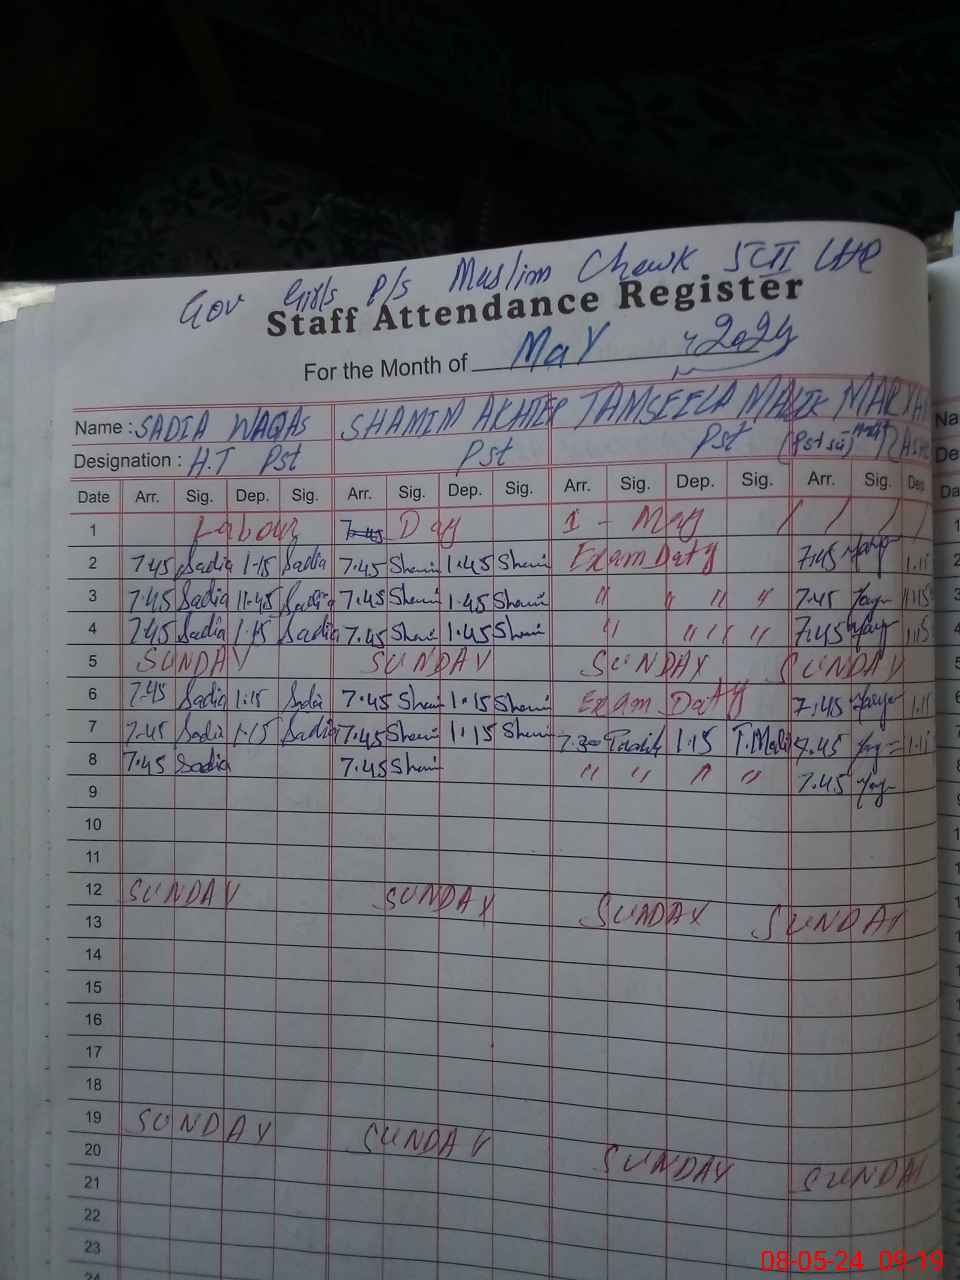 Gov Girls P/s Muslim Chowk
Staff Attendance Register
For the Month of May 2024
Name : SADIA WAQAS SHAMIM AKHTER TAMSEELA MALIK
Designation : H.T Pst Pst Pst
Date Arr. Sig. Dep. Sig. Arr. Sig. Dep. Sig. Arr. Sig. Dep. Sig. Arr. Sig. Dep.
1 Labour 7.45 Day 1 - May / / / /
2 7.45 Sadia 1-15 Sadia 7.45 Shami 1.45 Shami Exam Daty 7.45 1.15
3 7.45 Sadia 11.45 Sadia 7.45 Shami 1.45 Shami " " " " 7.45 1.15
4 7.45 Sadia 1.15 Sadia 7.45 Shami 1.45 Shami " " " " 7.45 1.15
5 SUNDAY SUNDAY SUNDAY SUNDAY
6 7-45 Sadia 1.15 Sadia 7.45 Shami 1.15 Shami Exam Daty 7.45 1.15
7 7-45 Sadia 1-15 Sadia 7.45 Shami 1.15 Shami 7.30 1.15 T.Malik 7.45 1.15
8 7.45 Sadia 7.45 Shami " " " " 7.45
9
10
11
12 SUNDAY SUNDAY SUNDAY SUNDAY
13
14
15
16
17
18
19 SUNDAY SUNDAY SUNDAY SUNDAY
20
21
22
23
24
08-05-24 09:19